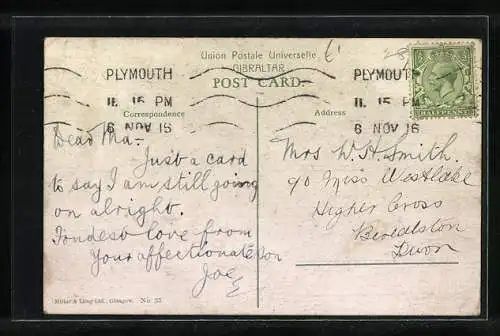 Union Postale Universelle
GIBRALTAR
POST CARD.
PLYMOUTH
11. 15 PM
6 NOV 16
PLYMOUTH
11. 15 PM
6 NOV 16
Correspondence
Address
Dear Ma.
Just a card
to say I am still going
on alright.
Fondest love from
Your affectionate son
Joe
Mrs W. H. Smith.
c/o Miss Westlake
Higher Cross
Berealston
Devon
Millar & Lang Ltd., Glasgow. No. 35